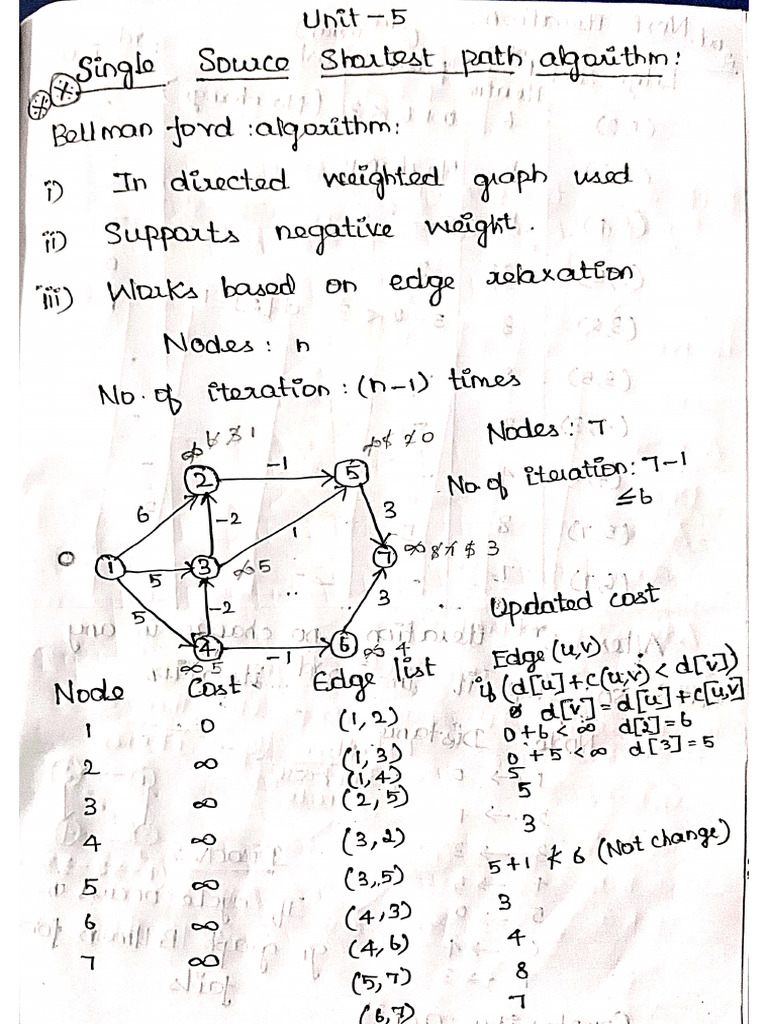 Unit - 5
Single Source Shortest path algorithm:
Bellman ford : algorithm:
i) In directed weighted graph used
ii) Supports negative weight.
iii) Works based on edge relaxation
Nodes: n
No. of iteration : (n-1) times
Nodes: 7
No. of iteration: 7-1
≤6
∞ 6 3 1
2
-1
5
6
-2
1
3
0
1
5
3
∞ 5
7
∞ 8 7 5 3
5
-2
3
4
∞ 5
-1
6
∞ 4
Updated cost
Edge (u,v)
if (d[u] + c(u,v) < d[v])
d[v] = d[u] + c[u,v]
Node Cost Edge list
1 0 (1,2) 0+6 < ∞ d[2]=6
2 ∞ (1,3) 0+5 < ∞ d[3]=5
(1,4) 5
3 ∞ (2,5) 5
4 ∞ (3,2) 3
5 ∞ (3,5) 5+1 ≮ 6 (Not change)
6 ∞ (4,3) 3
7 ∞ (4,6) 4
(5,7) 8
(6,7) 7